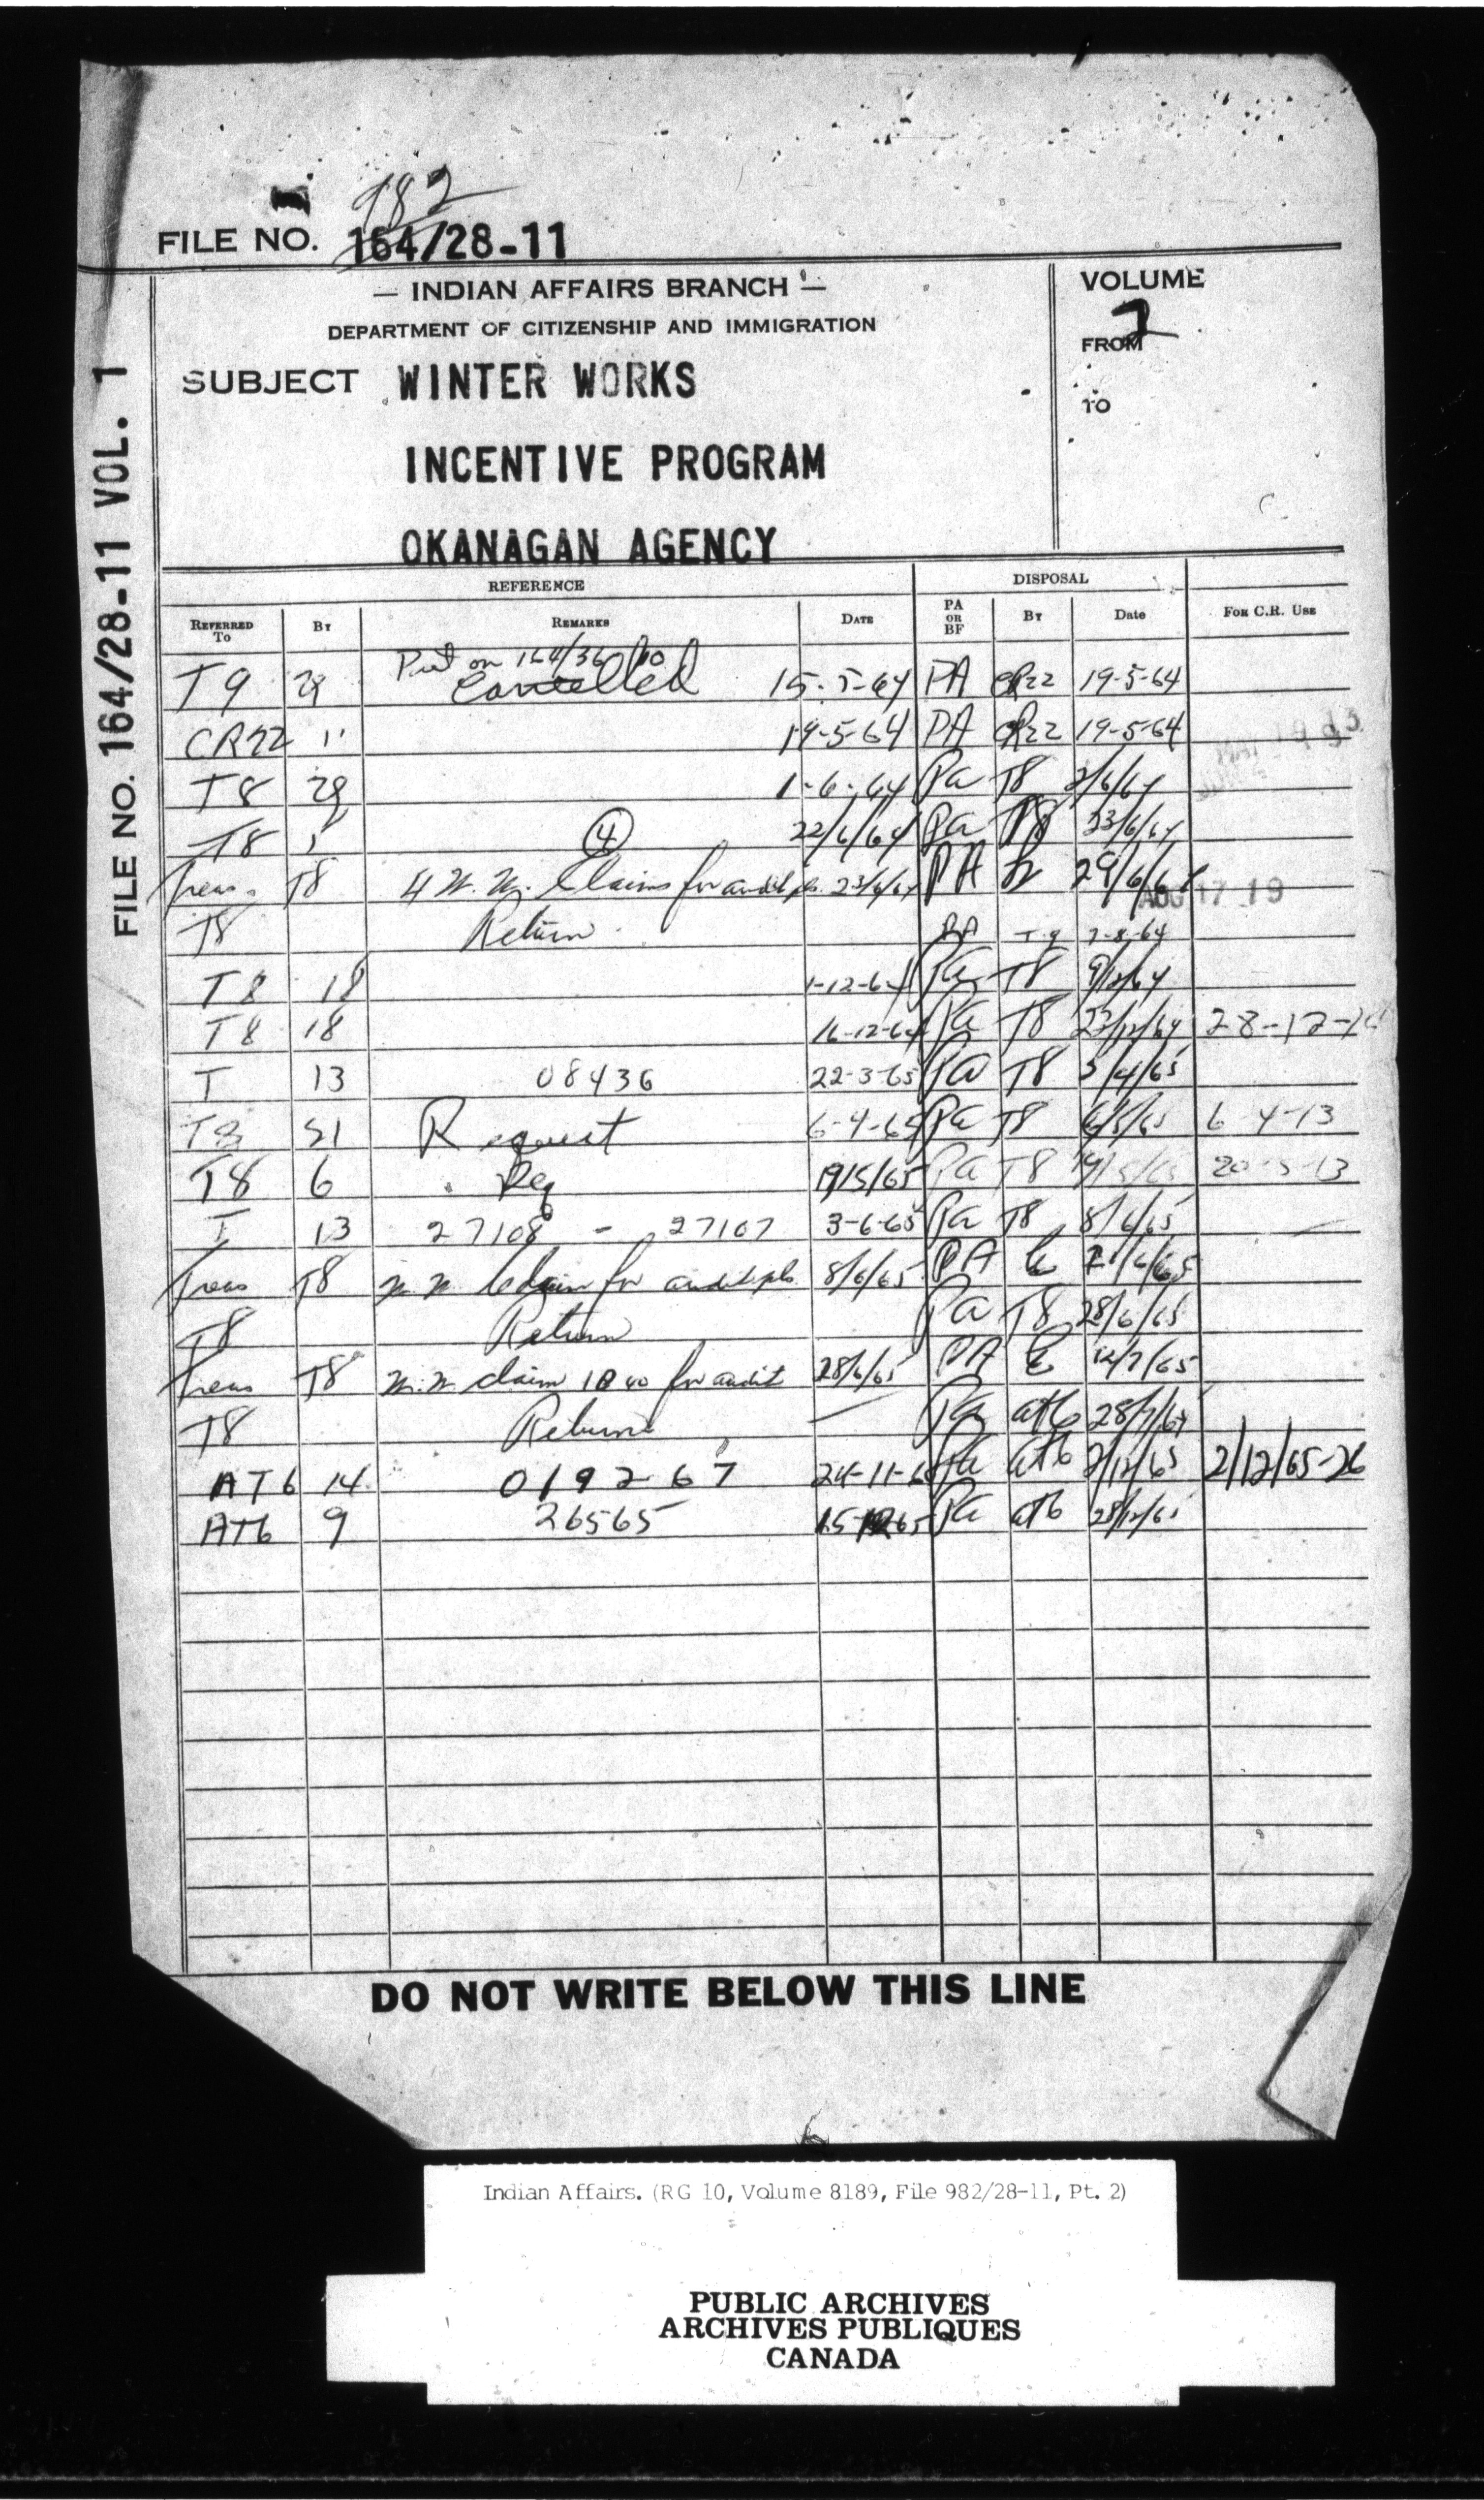 982
FILE NO. 164/28-11
— INDIAN AFFAIRS BRANCH —
DEPARTMENT OF CITIZENSHIP AND IMMIGRATION
SUBJECT WINTER WORKS
INCENTIVE PROGRAM
OKANAGAN AGENCY
VOLUME
2
FROM
TO
FILE NO. 164/28-11 VOL. 1
REFERENCE DISPOSAL
REFERRED TO BY REMARKS DATE PA OR BF BY Date FOR C.R. USE
Put on 164/36/10
T9 29 Cancelled 15-5-64 PA CR22 19-5-64
CR22 " 19-5-64 PA CR22 19-5-64
T8 29 1-6-64 Pa T8 2/6/64
T8 4 22/6/64 Pa T8 23/6/64
Treas T8 4 W.W. Claims for audit pls. 23/6/64 PA 29/6/64
AUG 17 19
T8 Return PA T9 7-8-64
T8 18 1-12-64 Pa T8 9/12/64
T8 18 16-12-64 Pa T8 23/12/64 28-12-
T 13 08436 22-3-65 Pa T8 5/4/65
T8 51 Request 6-4-65 Pa T8 6/5/65 6-4-13
T8 6 Req 19/5/65 Pa T8 19/5/65 20-5-13
T 13 27108 - 27107 3-6-65 Pa T8 8/6/65
Treas T8 W.W. Claim for audit pls. 8/6/65 PA 21/6/65
T8 Return Pa T8 28/6/65
Treas T8 W.W. claim for audit 28/6/65 PA 12/7/65
T8 Return Pa at6 28/7/65
AT6 14 019267 24-11-65 Pa at6 2/12/65 2/12/65-26
AT6 9 26565 15-12-65 Pa at6 28/12/65
DO NOT WRITE BELOW THIS LINE
Indian Affairs. (RG 10, Volume 8189, File 982/28-11, Pt. 2)
PUBLIC ARCHIVES
ARCHIVES PUBLIQUES
CANADA